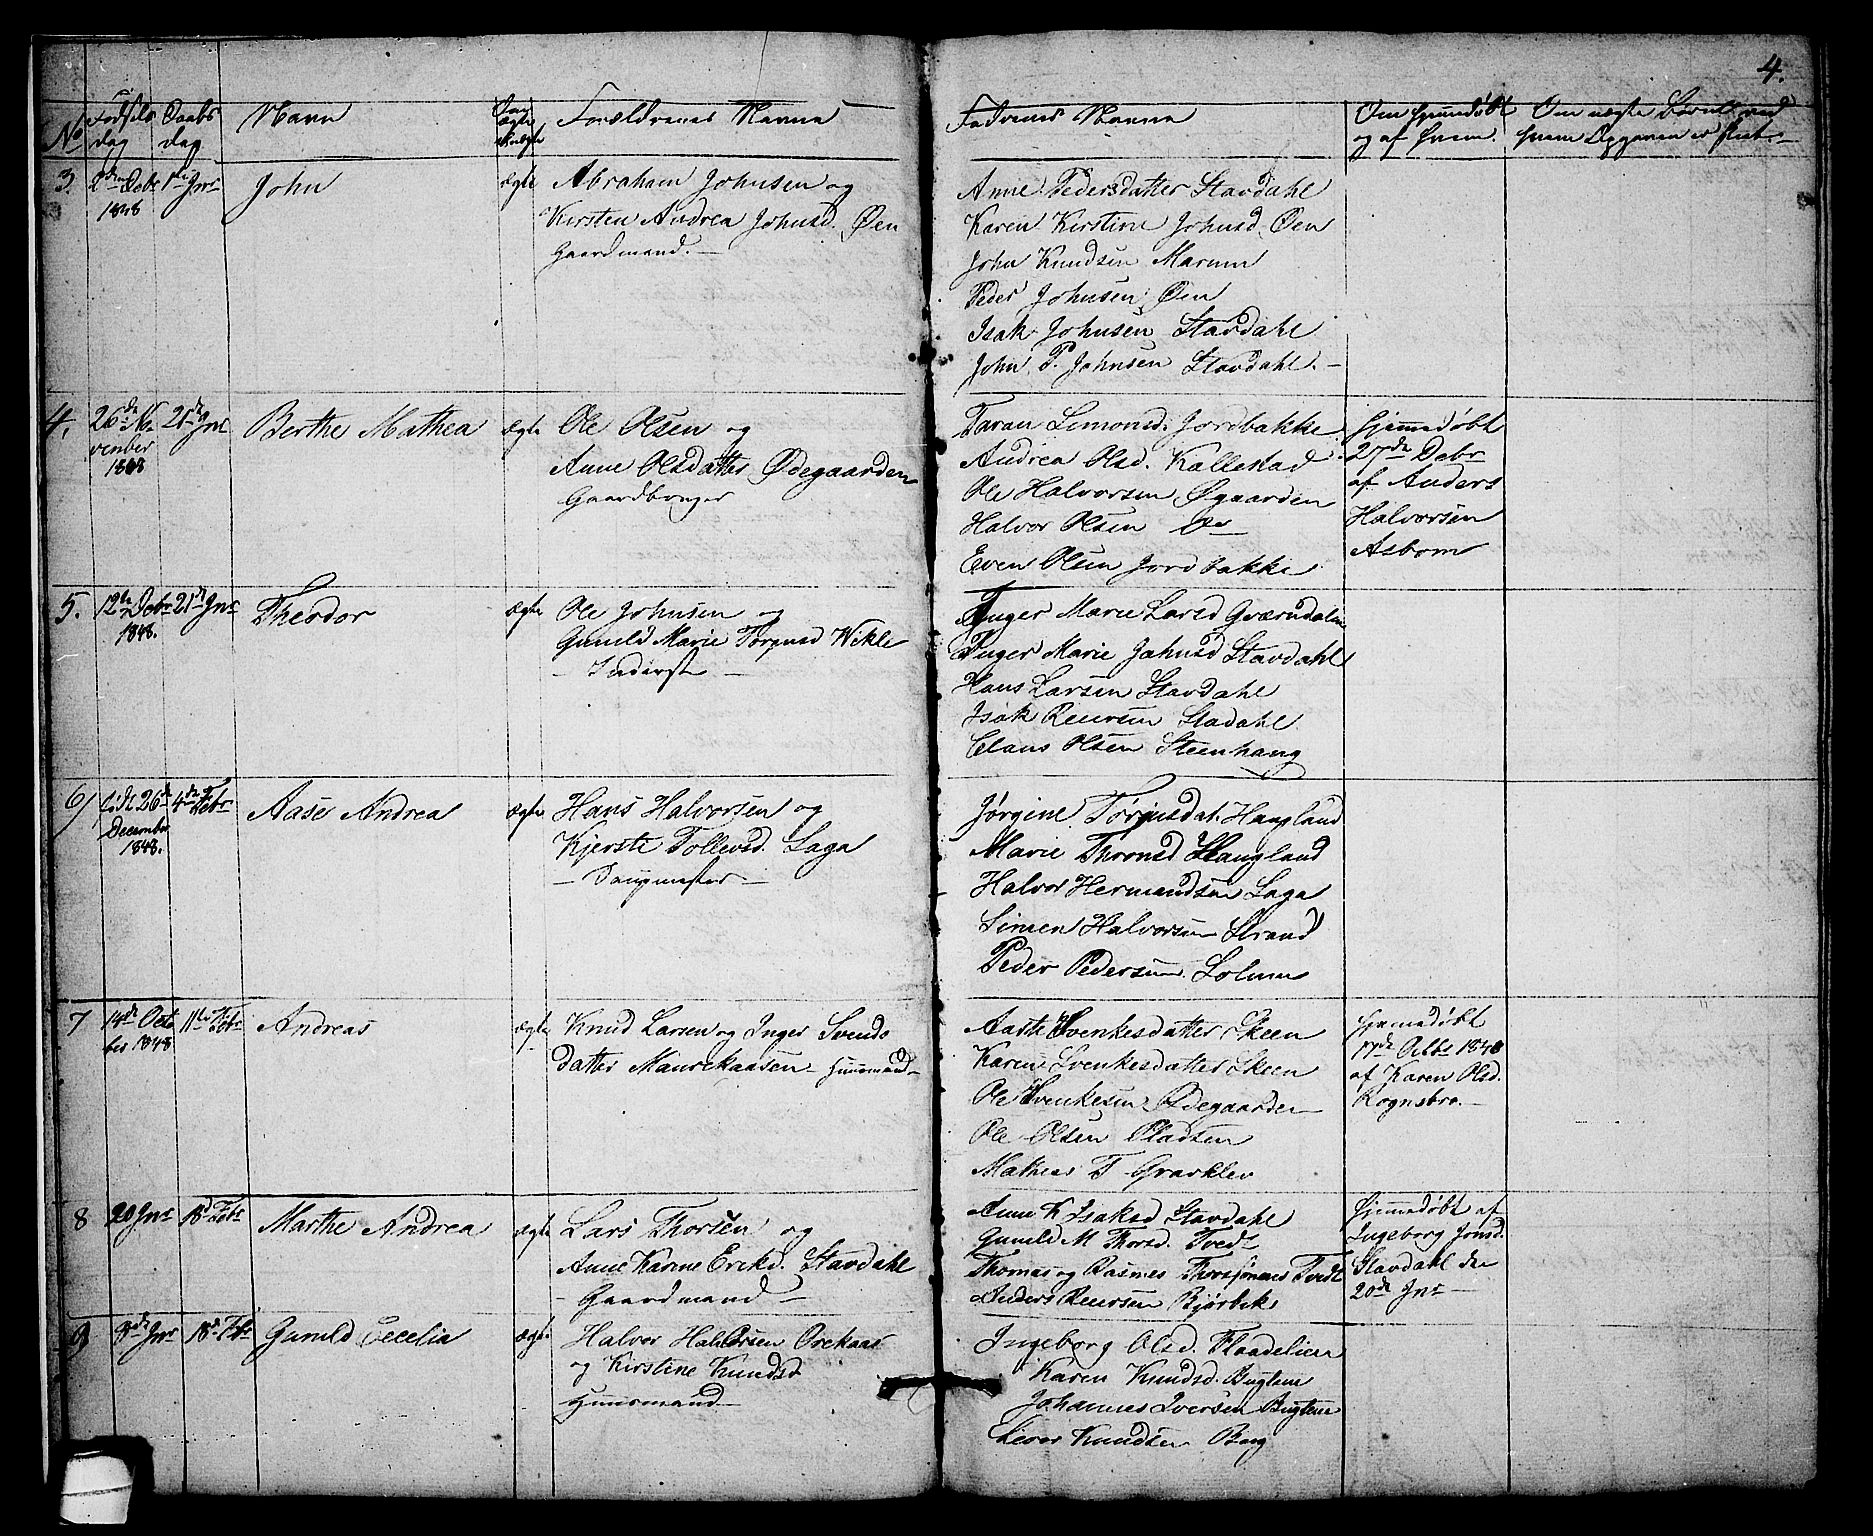 4.
No Fødsels dag Daabs dag Navn Om ægte uægte Forældrenes Navne Fadrenes Navne Om hjemdøbt og af hvem. Om uægte
3. 2den Decbr 1848 1ste Jnr John ægte
Abraham Johnsen og
Kirsten Andrea Johnsd. Øen
Gaardmand. —
Anne Pedersdatter Stavdahl
Karen Kirstine Johnsd. Øen
John Knudsen Marum
Peder Johnsen Øen
Isak Johnsen Stavdahl
John P. Johnsen Stavdahl. —
4. 26de No 21de Jnr Berthe Mathea ægte
vember
1848
Ole Olsen og
Anne Olsdatter Ødegaarden
Gaardbruger
Taran Simonsd. Jordbakke
Andrea Olsd. Kallestad
Ole Halvorsen Øgaarden
Halvor Olsen Do
Even Olsen Jordbakke
hjemmedøbt
27de Debr
af Anders
Halvorsen
Asbom
5. 12te Debr 21de Jnr Theodor ægte
1848.
Ole Johnsen og
Gunild Marie Torjusd Vikle
— Inderst —
Inger Marie Larsd
Inger Marie Johnsd Stavdahl
Hans Larsen Stavdahl
Isak Reiersen Stadahl
Claus Olsen Steenhaug
6) født 26de 4de Febr Aase Andrea ægte
December
1848.
Hans Halvorsen og
Kjersti Tollevsd. Laga
Jørgine Torjusdat. Haugland
Marie Thronsd Haugland
Halvor Hermandsen Laga
Simen Halvorsen Strand
Peder Pedersen Solum
7 14de Octo 11te Febr Andreas ægte
ber 1848
Knud Larsen og Inger Svends
datter Maurekaasen — Huusmand —
Aaste Svenkesdatter Skeen
Karen Svenkesdatter Skeen
Ole Svenkesen Ødegaarden
Ole Olsen Pladsen
Mathias T Graaklev
hjemmedøbt
17de Octbr 1848
af Karen Olsd.
Rognsbro. —
8 20 Jnr 18d Febr Marthe Andrea ægte
Lars Thorsen og
Anne Karine Eriksd. Stavdahl
— Gaardmand —
Anne K Isaksd Stavdahl
Gunild M Thorsd. Tvedt
Thomas og Rasmus Thorsjønnes Tvedt
Anders Reiersen Bjørbek
hjemmedøbt af
Ingeborg Jonsd.
Stavdahl den
20de Jnr —
9 9de Jnr 18de Febr Gunild Cecelia ægte
Halvor Halvorsen Orekaas
og Kirstine Knudsd
Huusmand —
Ingeborg Olsd. Flaadelien
Karen Knudsd. Bugten
Johannes Iversen Bugten
Knudsen Berg